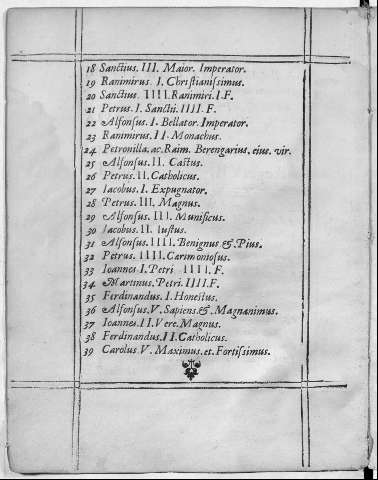 18 Sanctius. III. Maior. Imperator.
19 Ranimirus. I. Christianissimus.
20 Sanctius. IIII. Ranimiri. I. F.
21 Petrus. I. Sanctii. IIII. F.
22 Alfonsus. I. Bellator. Imperator.
23 Ranimirus. II. Monachus.
24 Petronilla. ac. Raim. Berengarius. eius. vir.
25 Alfonsus. II. Castus.
26 Petrus. II. Catholicus.
27 Iacobus. I. Expugnator.
28 Petrus. III. Magnus.
29 Alfonsus. III. Munificus.
30 Iacobus. II. Iustus.
31 Alfonsus. IIII. Benignus & Pius.
32 Petrus. IIII. Carimoniosus.
33 Ioannes. I. Petri. IIII. F.
34 Martinus. Petri. IIII. F.
35 Ferdinandus. I. Honestus.
36 Alfonsus. V. Sapiens. & Magnanimus.
37 Ioannes. II. Vere. Magnus.
38 Ferdinandus. II. Catholicus.
39 Carolus. V. Maximus. et. Fortissimus.